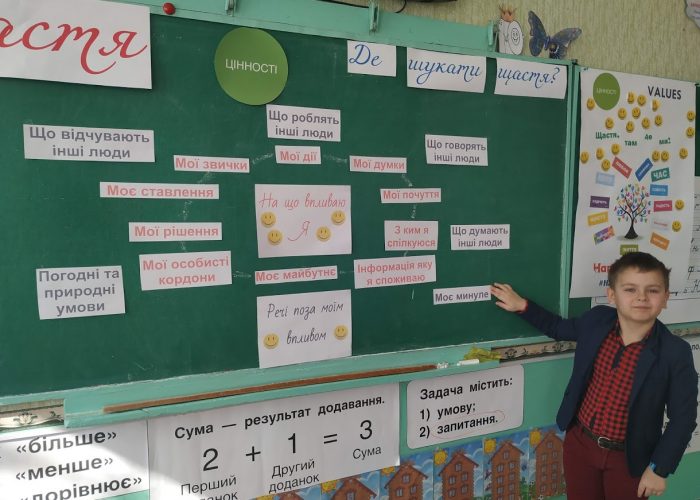 астя
ЦІННОСТІ
Де шукати щастя?
Що відчувають
інші люди
Що роблять
інші люди
Що говорять
інші люди
Мої звички
Мої дії
Мої думки
Моє ставлення
На що впливаю
Я
Мої почуття
Мої рішення
З ким я
спілкуюся
Що думають
інші люди
Погодні та
природні
умови
Мої особисті
кордони
Моє майбутнє
Інформація яку
я споживаю
Моє минуле
Речі поза моїм
впливом
ЦІННОСТІ
VALUES
Щастя,
там де
ма!
ЧАС
«більше»
«менше»
«дорівнює»
Сума — результат додавання.
2 + 1 = 3
Перший
данок
Другий
доданок
Сума
Задача містить:
1) умову;
2) запитання.